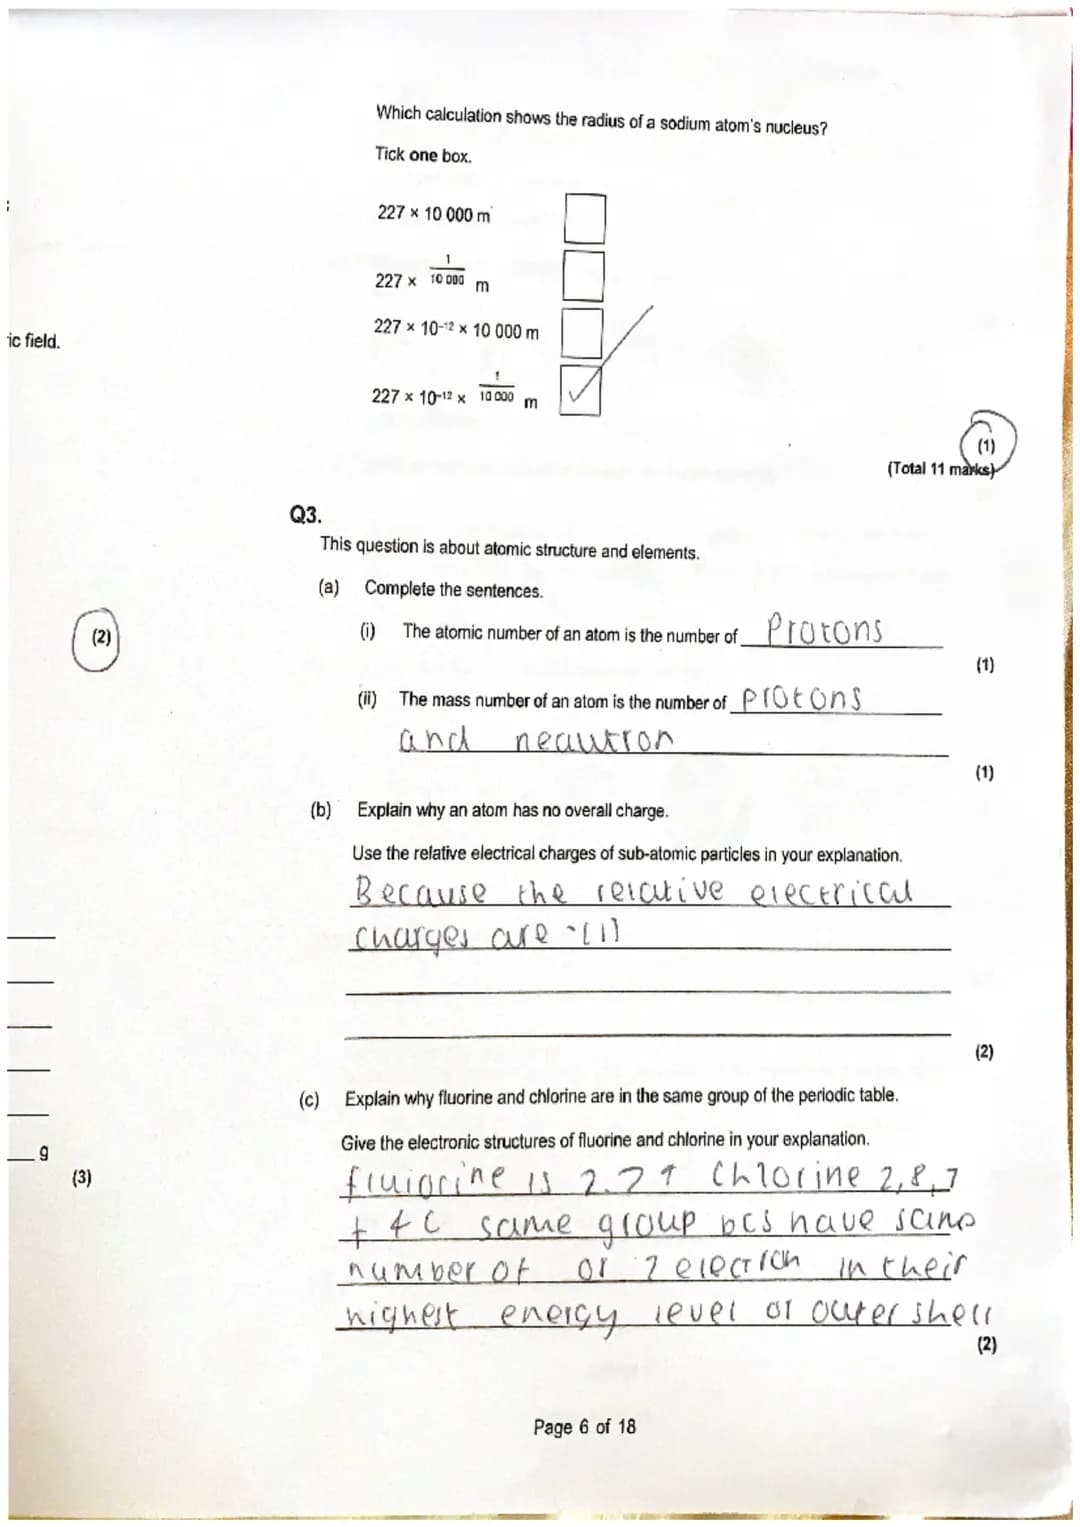 Which calculation shows the radius of a sodium atom's nucleus?
Tick one box.
227 × 10 000 m
227 × 1/10 000 m
ic field.
227 × 10-12 × 10 000 m
227 × 10-12 × 1/10 000 m
(1)
(Total 11 marks)
Q3.
This question is about atomic structure and elements.
(a) Complete the sentences.
(2)
(i) The atomic number of an atom is the number of Protons
(1)
(ii) The mass number of an atom is the number of protons
and neautron
(1)
(b) Explain why an atom has no overall charge.
Use the relative electrical charges of sub-atomic particles in your explanation.
Because the relative electrical
charges are -(1)
(2)
(c) Explain why fluorine and chlorine are in the same group of the periodic table.
Give the electronic structures of fluorine and chlorine in your explanation.
g
(3)
fluiorine is 2.7 Chlorine 2,8,7
same group bcs have same
number of or 7 electron in their
highest energy level or outer shell
(2)
Page 6 of 18